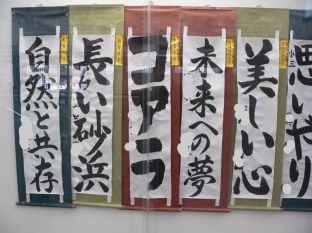 自然と共存
長い砂浜
コアラ
未来への夢
美しい心
思いやり
小二